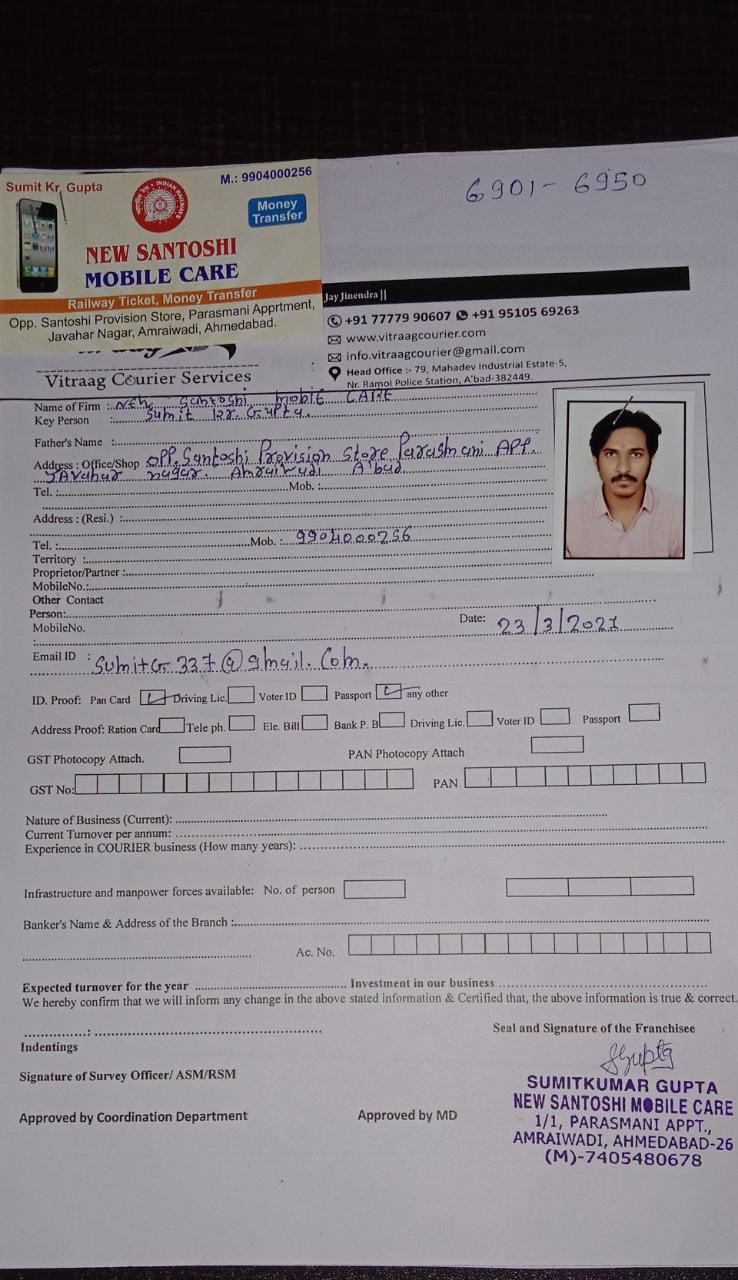 6901-6950
Sumit Kr. Gupta
M.: 9904000256
INDIAN RAILWAYS
Money
Transfer
NEW SANTOSHI
MOBILE CARE
Railway Ticket, Money Transfer
Opp. Santoshi Provision Store, Parasmani Apprtment,
Javahar Nagar, Amraiwadi, Ahmedabad.
Jay Jinendra ||
+91 77779 90607 +91 95105 69263
www.vitraagcourier.com
info.vitraagcourier@gmail.com
Head Office :- 79, Mahadev Industrial Estate-5,
Nr. Ramol Police Station, A'bad-382449.
Vitraag Courier Services
Name of Firm : NEW Santoshi mobile CARE
Key Person Sumit kr. Gupta.
Father's Name :
Address : Office/Shop OPP. Santoshi Provision Store Parasmani APP.
JAvahar nagar. Amraiwadi A'bad
Tel. : Mob. :
Address : (Resi.) :
Tel. : Mob. : 9904000256
Territory :
Proprietor/Partner :
MobileNo.:
Other Contact
Person:
Date: 23/3/2021
MobileNo.
:
Email ID : SumitG337@gmail.com.
ID. Proof: Pan Card Driving Lic. Voter ID Passport any other
Address Proof: Ration Card Tele ph. Ele. Bill Bank P. B Driving Lic. Voter ID Passport
GST Photocopy Attach. PAN Photocopy Attach
GST No: PAN
Nature of Business (Current):
Current Turnover per annum:
Experience in COURIER business (How many years):
Infrastructure and manpower forces available: No. of person
Banker's Name & Address of the Branch :
Ac. No.
Expected turnover for the year Investment in our business
We hereby confirm that we will inform any change in the above stated information & Certified that, the above information is true & correct.
Seal and Signature of the Franchisee
Indentings
SGupta
Signature of Survey Officer/ ASM/RSM
SUMITKUMAR GUPTA
NEW SANTOSHI MOBILE CARE
1/1, PARASMANI APPT.,
AMRAIWADI, AHMEDABAD-26
(M)-7405480678
Approved by Coordination Department Approved by MD